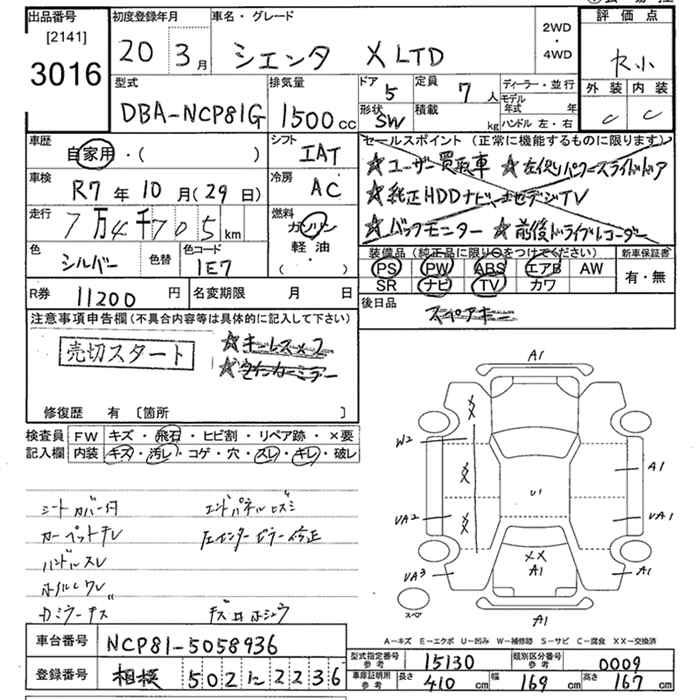 出品番号
[2141]
3016
初度登録年月
20 3月
車名・グレード
シエンタ X LTD
2WD
・
4WD
評価点
外装 内装
C C
型式
DBA-NCP81G
排気量
1500cc
ドア
5
定員
7人
形状
SW
積載
kg
ディーラー・並行
モデル年式 年
ハンドル 左・右
車歴
自家用・( )
シフト
IAT
車検
R7年10月(29日)
冷房
AC
走行
7万4千705km
燃料
ガソリン
軽油
( )
色
シルバー
色替
色コード
1E7
R券
11200円
名変期限 月 日
セールスポイント (正常に機能するものに限ります)
★ユーザー買取車 ★左側パワースライドドア
★純正HDDナビ 地デジTV
★バックモニター ★前後ドライブレコーダー
装備品(純正品に限り○をつけてください)
PS PW ABS エアB AW
SR ナビ TV カワ
新車保証書
有・無
後日品
スペアキー
注意事項申告欄(不具合内容等は具体的に記入して下さい)
売切スタート
★キーレス×2
★ウインカーミラー
修復歴 有 [箇所 ]
検査員
記入欄
FW キズ・飛石・ヒビ割・リペア跡・×要
内装 キズ・汚レ・コゲ・穴・スレ・キレ・破レ
シートカバー付
カーペットキレ
ハンドルスレ
エンドパネルヒズミ
左センターピラー修正
A1
W2
A1
U1
UA2
UA1
XX
A1
UA3
A1
スペア
A1
A-キズ E-エクボ U-凹み W-補修跡 S-サビ C-腐食 XX-交換済
車台番号
NCP81-5058936
登録番号
相模 502 に 2236
型式指定番号
参考
15130
類別区分番号
参考
0009
車庫証明用
参考
長さ
410cm
幅
169cm
高さ
167cm